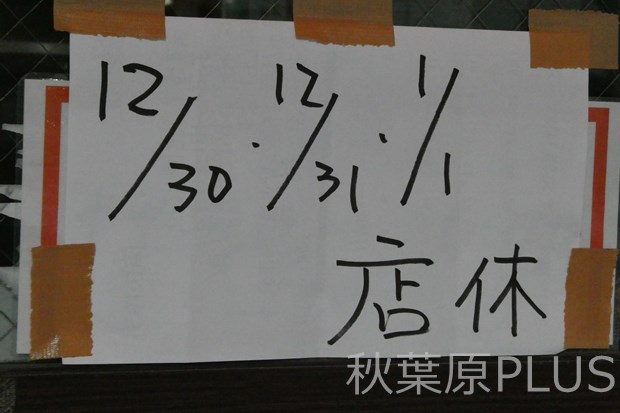 12/30・12/31・1/1
店休
秋葉原PLUS